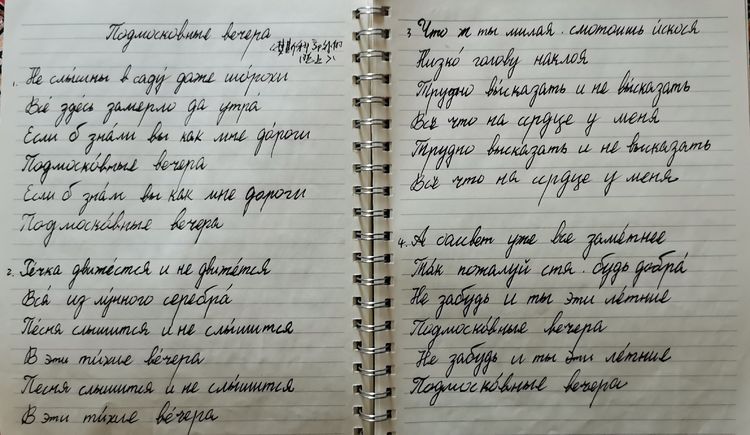 Подмосковные вечера
《莫斯科郊外的
晚上》
1. Не слы́шны в саду́ даже шо́рохи
Всё зде́сь замерло да утра́
Если б зна́ли вы как мне до́роги
Подмоско́вные вечера
Если б зна́ли вы как мне дороги
Подмоско́вные вечера
2. Ре́чка движе́тся и не движе́тся
Вся́ из лу́нного серебра́
Пе́сня слышится и не слы́шится
В эти ти́хие ве́чера
Песня слышится и не слы́шится
В эти ти́хие ве́чера
3. Что ж ты милая. смотришь и́скося
Низко́ голову наклоя
Трудно вы́сказать и не вы́сказать
Всё что на сердце у меня
Трудно высказать и не высказать
Всё что на сердце у меня
4. А рассвет уже все заме́тнее
Та́к пожалуй ста. будь добра́
Не забудь и ты эти ле́тние
Подмоско́вные вечера
Не забудь и ты эти ле́тние
Подмоско́вные вечера